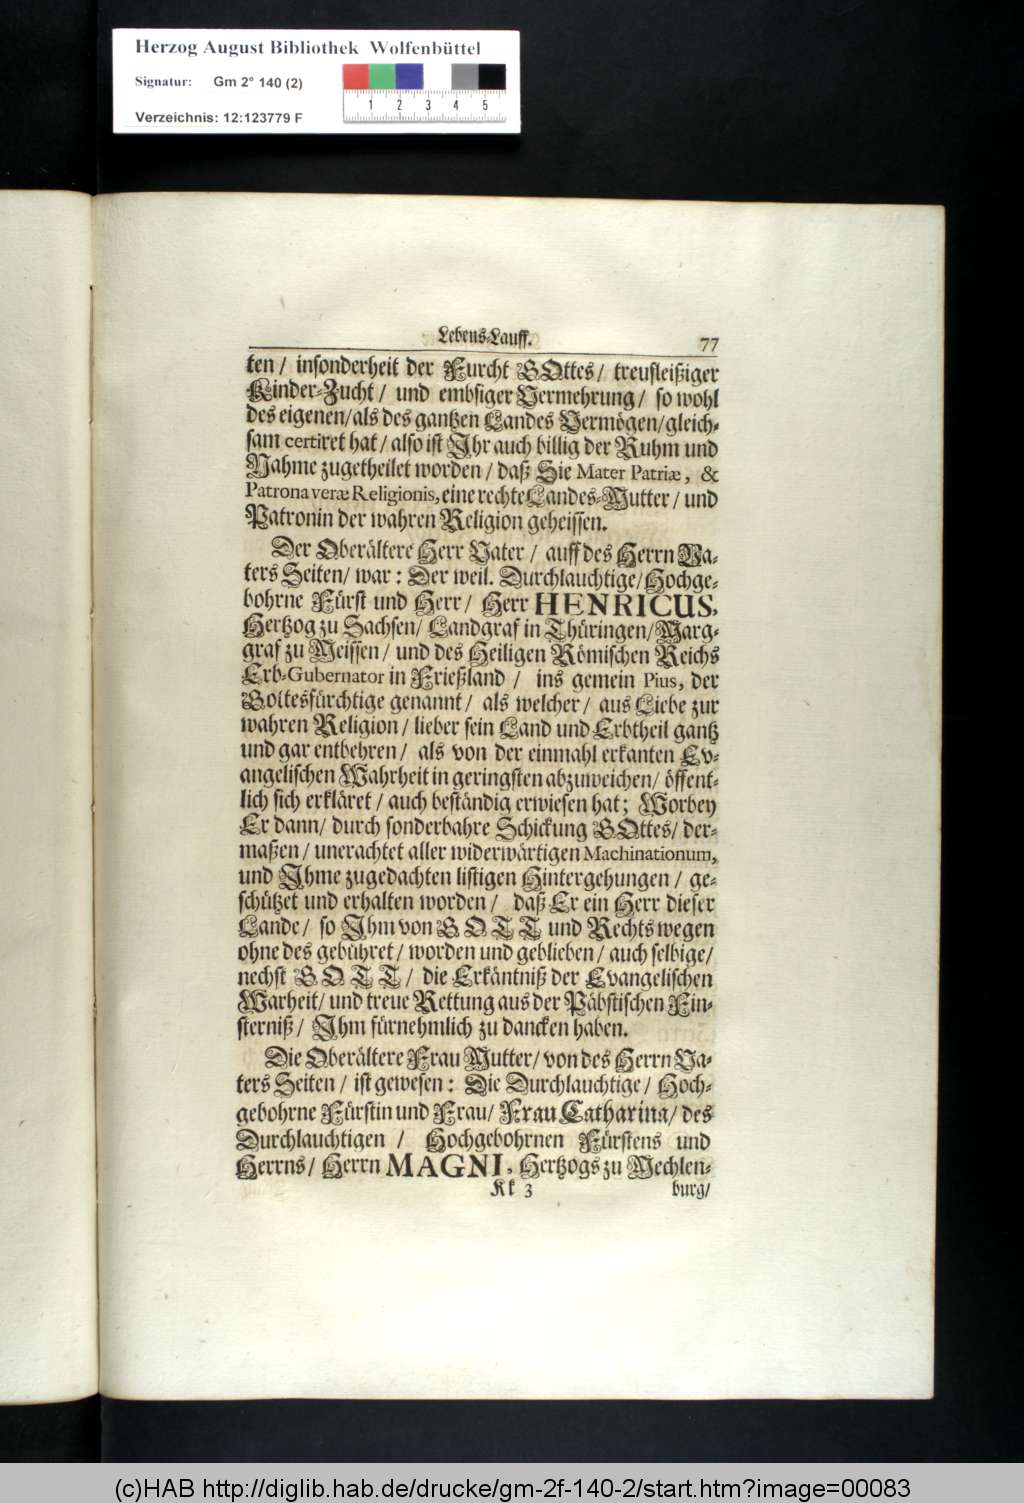 Herzog August Bibliothek Wolfenbüttel
Signatur: Gm 2° 140 (2)
1 2 3 4 5
Verzeichnis: 12:123779 F
Lebens-Lauff. 77
ten / insonderheit der Furcht GOttes / treufleißiger
Kinder-Zucht / und embsiger Vermehrung / so wohl
des eigenen / als des gantzen Landes Vermögen / gleich-
sam certiret hat / also ist Ihr auch billig der Ruhm und
Nahme zugetheilet worden / daß Sie Mater Patriæ, &
Patrona veræ Religionis, eine rechte Landes-Mutter / und
Patronin der wahren Religion geheissen.
Der Oberältere Herr Vater / auff des Herrn Va-
ters Seiten / war : Der weil. Durchlauchtige / Hochge-
bohrne Fürst und Herr / Herr HENRICUS,
Hertzog zu Sachsen / Landgraf in Thüringen / Marg-
graf zu Meissen / und des Heiligen Römischen Reichs
Erb-Gubernator in Frießland / ins gemein Pius, der
Gottesfürchtige genannt / als welcher / aus Liebe zur
wahren Religion / lieber sein Land und Erbtheil gantz
und gar entbehren / als von der einmahl erkanten Ev-
angelischen Wahrheit in geringsten abzuweichen / öffent-
lich sich erkläret / auch beständig erwiesen hat ; Worbey
Er dann / durch sonderbahre Schickung GOttes / der-
maßen / unerachtet aller widerwärtigen Machinationum,
und Ihme zugedachten listigen Hintergehungen / ge-
schützet und erhalten worden / daß Er ein Herr dieser
Lande / so Ihm von GOTT und Rechts wegen
ohne des gebühret / worden und geblieben / auch selbige /
nechst GOTT / die Erkäntniß der Evangelischen
Warheit / und treue Rettung aus der Päbstischen Fin-
sterniß / Ihm fürnehmlich zu dancken haben.
Die Oberältere Frau Mutter / von des Herrn Va-
ters Seiten / ist gewesen : Die Durchlauchtige / Hoch-
gebohrne Fürstin und Frau / Frau Catharina / des
Durchlauchtigen / Hochgebohrnen Fürstens und
Herrns / Herrn MAGNI, Hertzogs zu Mechlen-
Kk 3 burg /
(c)HAB http://diglib.hab.de/drucke/gm-2f-140-2/start.htm?image=00083